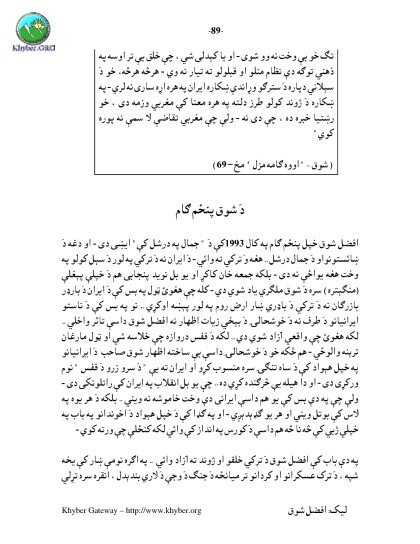 -89-
Khyber.ORG
تګ خو بې وخت نه وو شوی - او يا کېدلی شي ، چې خلق يې تر اوسه په
ذهني توګه دې نظام منلو او قبلولو ته تيار نه وي - هرڅه هرڅه، خو دَ
سېلاني دپاره دَ سترګو وړاندې ښکاره ايران په هره اړه ساری نه لري - په
ښکاره دَ ژوند کولو طرز دلته په هره معنا کې مغربي وزمه دی ، خو
رښتيا خبره ده ، چې دی نه - ولې چې مغربي تقاضې لا سمې نه پوره
کوي"
(شوق - "اووه ګامه مزل" مخ-69)
دَ شوق پنځم ګام
افضل شوق خپل پنځم ګام په کال 1993کې دَ "جمال په درشل کې" ايښی دی - او دغه دَ
ښائستونو او دَ جمال درشل.. هغه وَ ترکي ته وائي - دَ ايران نه دَ ترکي په لور دَ سېل کولو په
وخت هغه يواځې نه دی - بلکه جمعه خان کاکړ او يو بل نوید پنجابی هم دَ خپلې پېغلې
(منګېتره) سره دَ شوق ملګري ياد شوي دي - کله چې هغوئ ټول په بس کې دَ ايران دَ بارډر
بازرګان نه دَ ترکي دَ باډري ښار ارض روم په لور پېښه اوکړي .. نو په بس کې دَ ناستو
ايرانيانو دَ طرف نه دَ خوشحالۍ دَ بيخي زيات اظهار نه افضل شوق داسې تاثر واخلي ..
لکه هغوئ چې واقعي آزاد شوي دي .. لکه دَ قفس دروازه چې خلاصه شي او ټول مارغان
ترېنه والوځي - هم ځکه خو دَ خوشحالۍ داسې بې ساخته اظهار شوق صاحب دَ ايرانيانو
په خپل هېواد کې دَ ساه تنګۍ سره منسوب کړو او ايران ته يې "دَ سرو زرو دَ قفس" نوم
ورکړی دی - او دا هيله يې څرګنده کړې ده .. چې يو بل انقلاب په ايران کې راتلونکی دی -
ولې چې په دې بس کې يو هم داسې ايرانی دې وخت خاموشه نه ويني .. بلکه دَ هر يوه په
لاس کې بوتل ويني او هر يو ګډېږي - او په ګډا کې دَ خپل هېواد دَ اخوندانو په باب په
خپلې ژبې کې څه نا څه هم داسې دَ کورس په انداز کې وائي لکه کنځلې چې ورته کوي -
په دې باب کې افضل شوق دَ ترکي خلقو او ژوند ته آزاد وائي .. په اګره نومې ښار کې يخه
شپه ، دَ ترک عسکرانو او کردانو تر ميانځه دَ جنګ دَ وجې دَ لارې بندېدل ، انقره سره تړلي
Khyber Gateway – http://www.khyber.org
ليک: افضل شوق